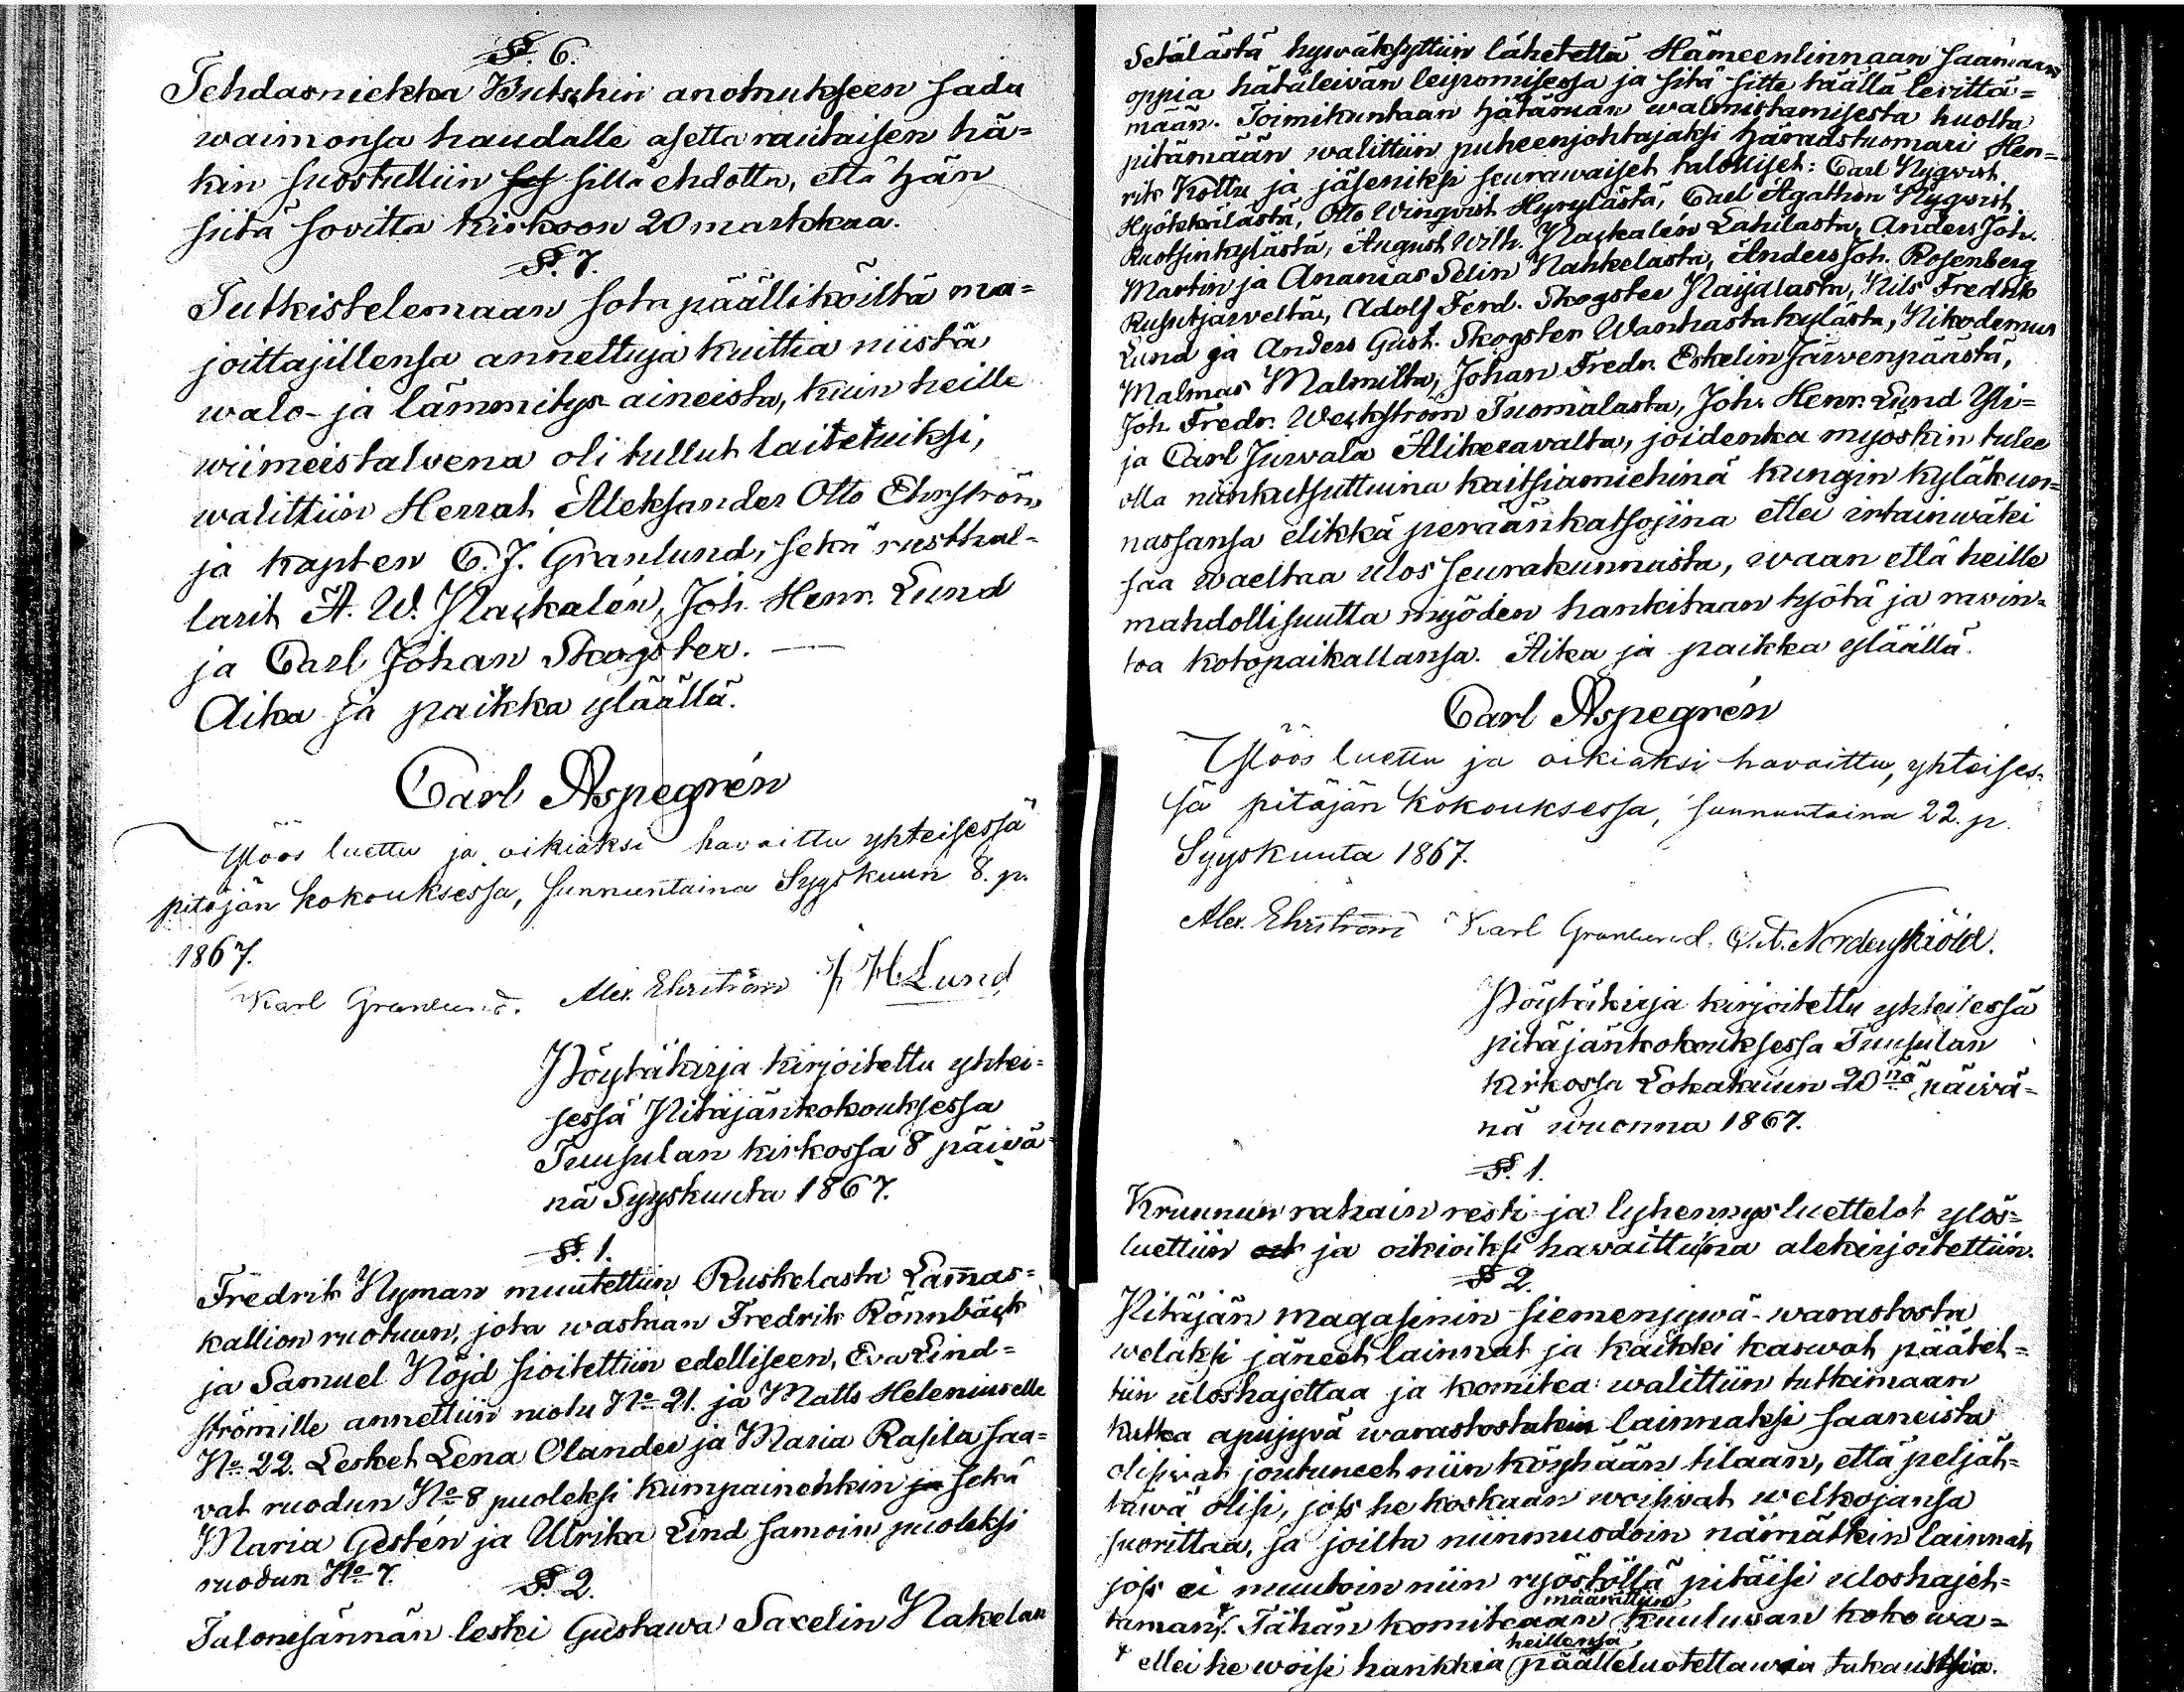 §. 6.
Tehdasniekka Butschin anomukseen saada
waimonsa haudalle asetta rautaisen hä-
kin suostuttiin sillä ehdolla, että hän
siitä sovitta kirkoon 20 markkaa.
§. 7.
Tutkistelemaan sota päälliköiltä ma-
joittajillensa annettuja kuittia niistä
walo- ja lämmitys-aineista, kuin heille
wiimeistalvena oli tullut laitetuiksi,
walittiin Herrat Aleksander Otto Ehrström
ja kapten C. J. Granlund, sekä rusthal-
larit A. W. Nackalén, Joh. Henr. Lund
ja Carl Johan Skogster. —
Aika ja paikka yläällä.
Carl Aspegrén
Ylöös luettu ja oikiaksi havaittu yhteisessä
pitäjän kokouksessa, sunnuntaina Syyskuun 8. p.
1867.
Karl Granlund. Alex. Ehrström J H Lund
Pöytäkirja kirjoitettu yhtei-
sessä Pitäjänkokouksessa
Tuusulan kirkossa 8 päivä-
nä Syyskuuta 1867.
§. 1.
Fredrik Nyman muutettiin Ruskelasta Lam̄as-
kallion ruotuun, jota wastaan Fredrik Rönnbäck
ja Samuel Nöjd sioitettiin edelliseen, Eva Lind-
strömille annettiin ruotu No 21. ja Matts Heleniuselle
No 22. Lesket Lena Olander ja Maria Rasila saa-
vat ruodun No 8 puoleksi kumpainenkin ja sekä
Maria Gestén ja Ulrika Lind samoin puoleksi
ruodun No 7.
§. 2.
Talonisännän leski Gustawa Saxelin Nakelan
Setälästä hywäksyttiin lähetettä Hämeenlinnaan saamaan
oppia hätäleivän leipomisessa ja sitä sitte täällä levittä-
mään. Toimikuntaan hätämään walmistamisesta huolta
pitämään walittiin puheenjohtajaksi häradstuomari Hen-
rik Kottu ja jäseniksi seurawaiset talolliset: Carl Nyqvist
Hyökkälästä, Otto Winqvist Hyrylästä, Carl Agathon Nyqvist
Ruotsinkylästä, August Wilh. Nackalén Lahelasta, Anders Joh.
Martin ja Ananias Selin Nahkelasta, Anders Joh. Rosenberg
Rusutjärveltä, Adolf Ferd. Skogster Paijalasta, Nils Fredrik
Lund ja Anders Gust. Skogster Wanhastakylästä, Nikodemus
Malmas Malmilta, Johan Fredr. Eskelin Järwenpäästä,
Joh. Fredr. Weckström Tuomalasta, Joh. Henr. Lund Yli-
ja Carl Juvala Alikeravalta, joidenka myöskin tulee
olla niinkutsuttuina kaitsiamiehinä kungin kyläkun-
nassansa elikkä peräänkatsojina ettei irtainwäki
saa waeltaa ulos seurakunnasta, waan että heille
mahdollisuutta myöden hankitaan työtä ja ravin-
toa kotopaikallansa. Aika ja paikka yläällä.
Carl Aspegrén
Ylöös luettu ja oikiaksi havaittu, yhteises-
sä pitäjän kokouksessa, sunnuntaina 22. p.
Syyskuuta 1867.
Alex. Ehrström Karl Granlund. Nordenskiöld.
Pöytäkirja kirjoitettu yhteisessä
pitäjänkokouksessa Tuusulan
kirkossa Lokakuun 20nä päivä-
nä wuonna 1867.
§. 1.
Kruunun rahain resti- ja lyhennys luettelot ylös-
luettiin ja oikioiksi havaittuina alekirjoitettiin.
§ 2.
Pitäjän magasinin siemenjywä-warastosta
welaksi jäneet lainnat ja kaikki kaswot päätet-
tiin uloshajettaa ja komitea walittiin tutkimaan
kutka apujyvä warastostakin lainnaksi saaneista
olisivat joutuneet niin köyhään tilaan, että peljät-
täwä olisi, jos he koskaan woisivat welkojansa
suorittaa, ja joilta niinmuodoin nämätkin lainnat
jos ei muutoin niin ryöstöllä pitäisi uloshajet-
taman. Tähän komiteaan määrättiin kuuluwan koko wa-
ellei he woisi hankkia heillensä päälleluotettawia takausmiehiä.